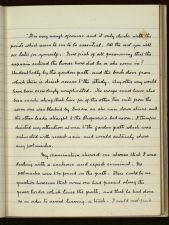 "It is very rough of course and it only deals with the
points which seem to me to be essential. All the rest you will see
later for yourself. Now first of all presuming that the
assassin entered the house how did he or she come in?
Undoubtedly by the garden path and the back door from
which there is direct access to the study. Any other way would
have been exceedingly complicated. The escape must have also
been made along that line for of the two other exits from the
room one was blocked by Susan as she ran down stairs and
the other leads straight to the Professor's bed room. I therefore
directed my attention at once to the garden path which was
saturated with recent rain and would certainly show
any footmarks.
My examination showed me that I was
dealing with a cautious and expert criminal. No
footmarks were to be found on the path. There could be no
question however that some one had passed along the
grass border which lines the path, and that he had done
so in order to avoid leaving a track. I could not find